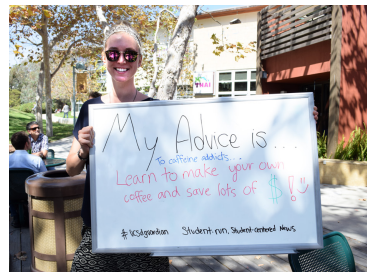 THAI
My Advice is...
To caffeine addicts...
Learn to make your own
coffee and save lots of $!
#ucsdguardian Student-run, Student-centered News